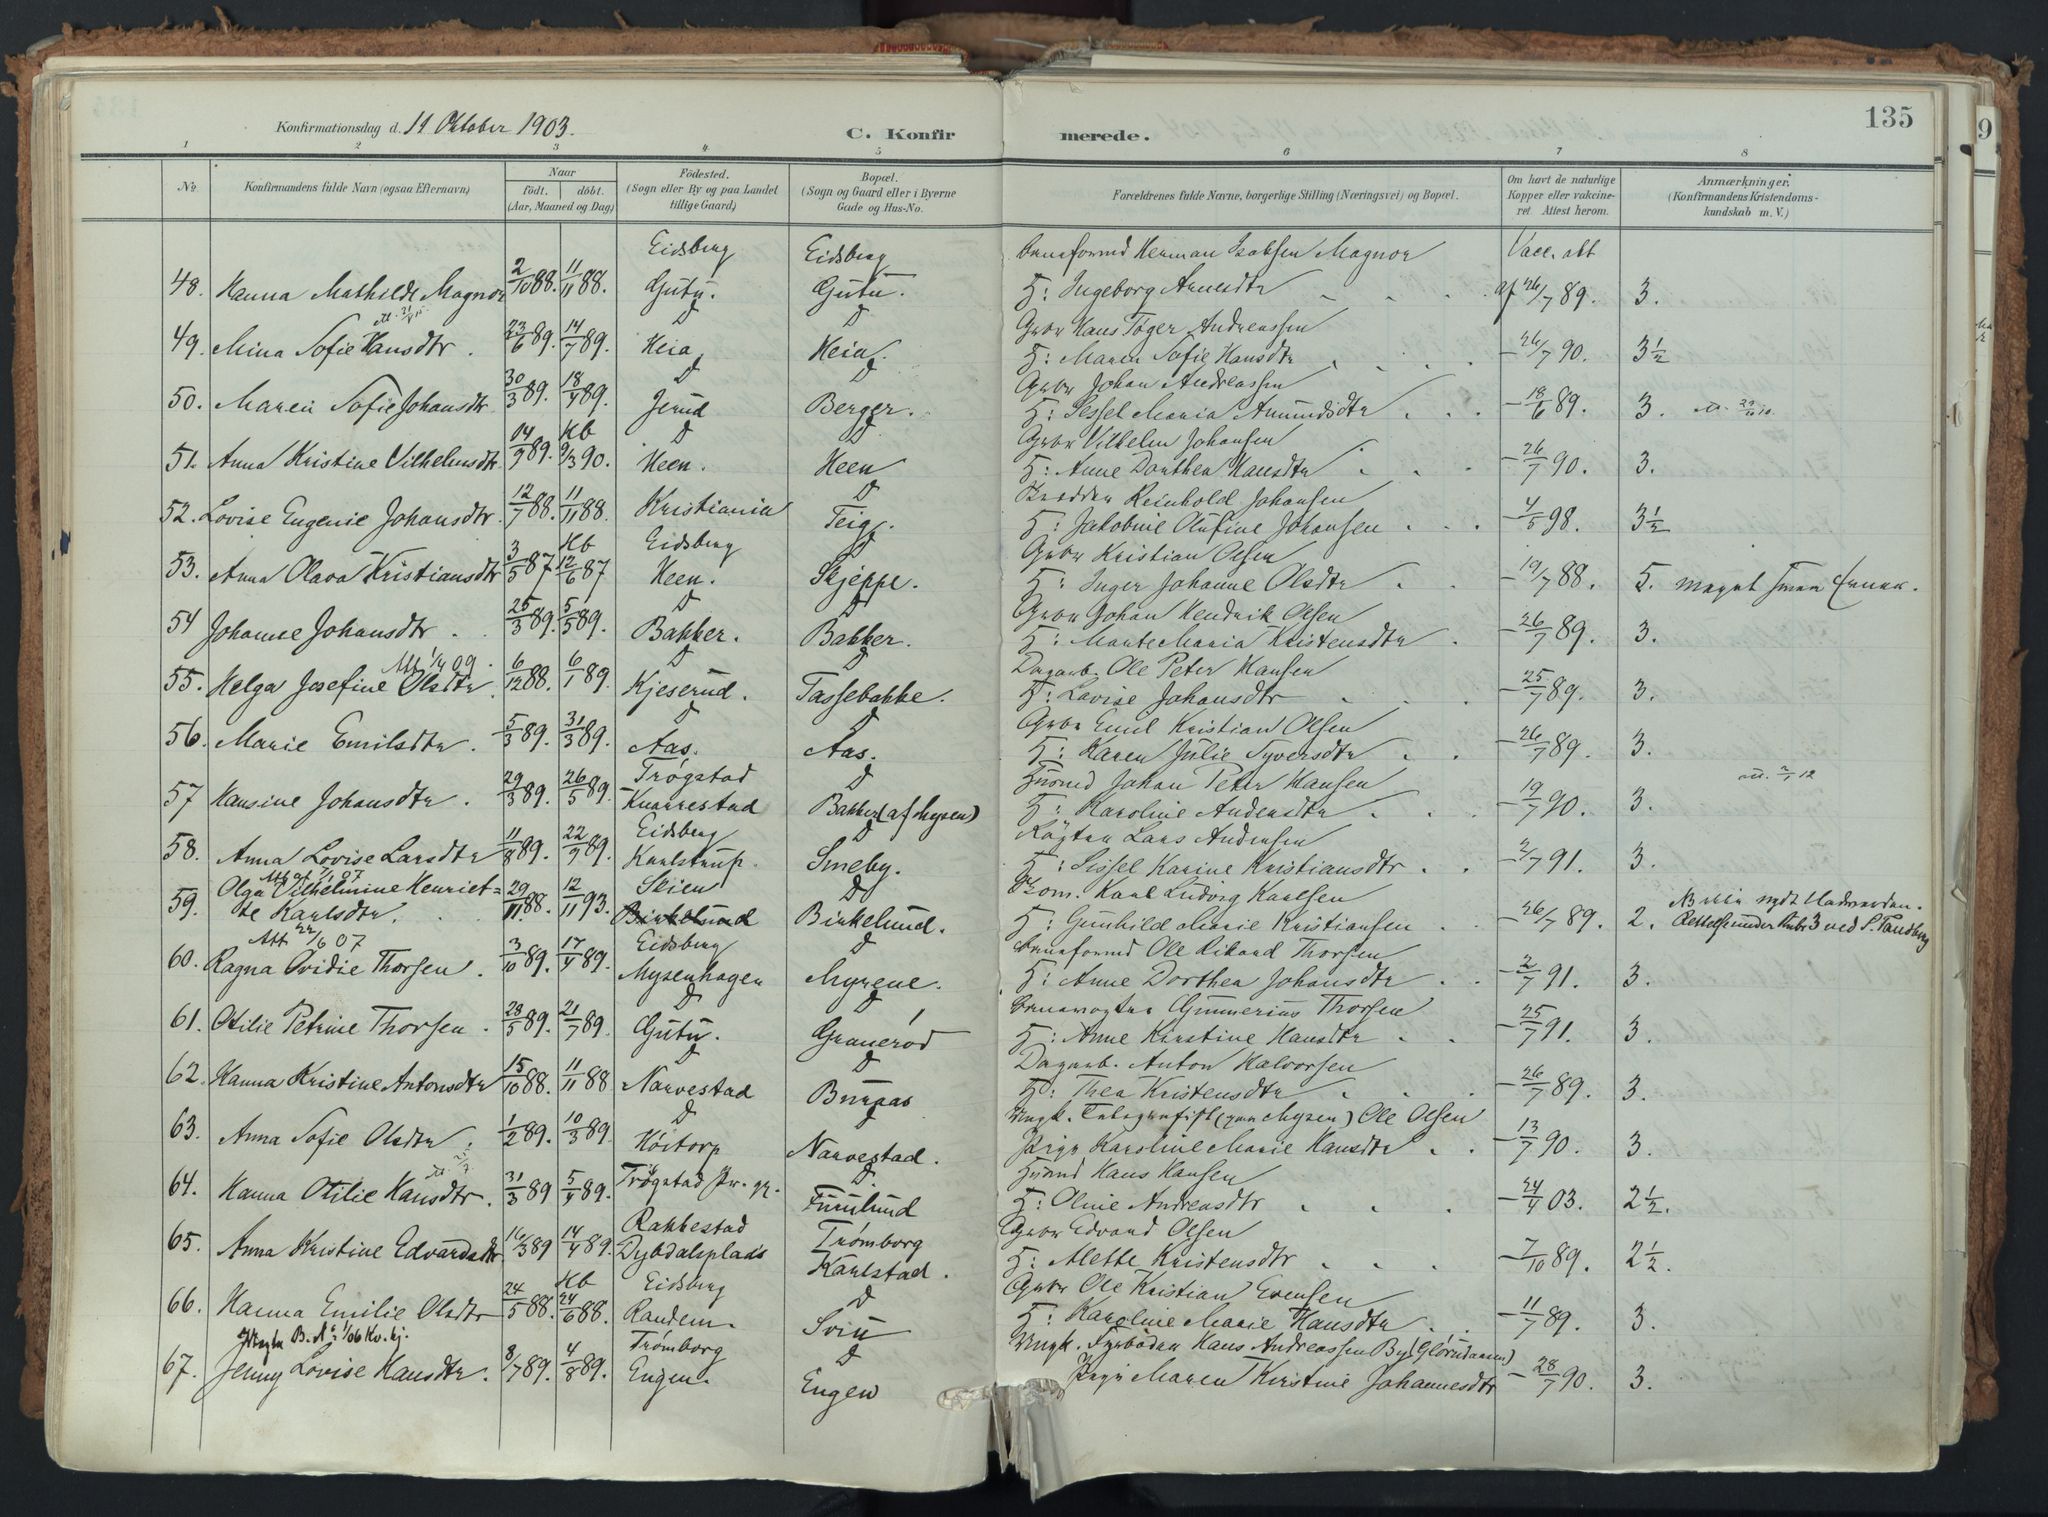 135
Konfirmationsdag d. 11 Oktober 1903.
C. Konfirmerede.
1 2 3 4 5 6 7 8
No. Konfirmandens fulde Navn (ogsaa Efternavn) Naar födt. döbt. (Aar, Maaned og Dag.) Födested. (Sogn eller By og paa Landet tillige Gaard.) Bopæl. (Sogn og Gaard eller i Byerne Gade og Hus-No. Forældrenes fulde Navne, borgerlige Stilling (Næringsvei) og Bopæl. Om havt de naturlige Kopper eller vakcineret. Attest herom. Anmærkninger. (Konfirmandens Kristendomskundskab m. V.)
Eidsberg Eidsberg Banaformd Herman Isaksen Magnor Vacc. att
48. Hanna Mathilde Magnor 2/10 88. 11/11 88. Gutu. Gutu. H: Ingeborg Arnesdtr af 26/7 89. 3.
D D Gvbr Hans Töger Andreassen
49. Mina Sofie Hansdtr. 23/6 89. 14/7 89. Heia Heia. H: Maren Sofie Hansdtr - 26/7 90. 3 1/2
D D Gvbr Johan Andreassen
50. Maren Sofie Johansdtr 30/3 89. 18/4 89. Jerud Berger. H: Sessel Maria Amundsdtr - 18/6 89. 3.
D D Gvbr Vilhelm Johansen
51. Anna Kristine Vilhelmsdtr 14/9 89. Hb 9/3 90. Heen. Heen H: Anne Dorthea Hansdtr - 26/7 90. 3.
D Reinhold Johansen
52. Lovise Eugenie Johansdtr. 12/7 88. 11/11 88. Kristiania Teig. H: Jakobine Olufine Johansen - 4/5 98. 3 1/2
Eidsberg D Gvbr Kristian Olsen
53. Anna Olava Kristiansdtr 3/5 87 Hb 12/6 87 Heen. Skjeppe. H: Inger Johanne Olsdtr - 19/7 88. 5. meget smaa Evner.
D D Gvbr Johan Hendrik Olsen
54 Johanne Johansdtr. 25/3 89. 5/5 89. Bakker. Bakker. H: Marte Maria Kristensdtr - 26/7 89. 3.
Att 1/4 09. D D Dagarb. Ole Peter Hansen
55. Helga Josefine Olsdtr 6/12 88. 6/1 89. Kjeserud. Tassebakke. H: Lovise Johansdtr - 25/7 89. 3.
D D Gvbr Emil Kristian Olsen
56. Marie Emilsdtr. 5/3 89. 31/3 89. Aas. Aas. H: Karen Julie Syversdtr - 26/7 89. 3.
Trögstad D Husmd Johan Peter Hansen
57 Hansine Johansdtr. 29/3 89. 26/5 89. Knarrestad Bakker (af Mysen) H: Karoline Andersdtr - 19/7 90. 3.
Eidsberg D Rögtr Lars Andersen
58. Anna Lovise Larsdtr 11/8 89. 22/9 89. Karlstrup. Smeby. H: Sissel Karine Kristiansdtr - 2/7 91. 3.
Skien D Karl Ludvig Karlsen
59. Olga Vilhelmine Henriette Karlsdtr. 29/11 88. 12/11 93. Birkelund Birkelund. H: Gunhild Marie Kristiansen - 26/7 89. 2.
Att 22/6 07 Eidsberg D Banaformd Ole Rikard Thorsen
60. Ragna Ovidie Thorsen. 3/10 89. 17/4 89. Mysenhagen Myrene. H: Anne Dorthea Johansdtr - 2/7 91. 3.
D D Banavogter Gunnerius Thorsen
61. Otilie Petrine Thorsen. 28/5 89. 21/7 89. Gutu. Graneröd H: Anne Kirstine Hansdtr - 25/7 91. 3.
D D Dagarb. Anton Halvorsen
62. Hanna Kristine Antonsdtr 15/10 88. 11/11 88 Narvestad Buraas H: Thea Kristensdtr - 26/7 89. 3.
D D Ungk. Telegrafist (paa Mysen) Ole Olsen
63. Anna Sofie Olsdtr. 1/2 89. 10/3 89. Höitorp Narvestad. Pige Karoline Marie Hansdtr - 13/7 90. 3.
D Husmd Hans Hansen
64. Hanna Otilie Hansdtr. 31/3 89 5/4 89. Trögstad Pr. gj. Furulund H: Oline Andreasdtr - 24/4 03. 2 1/2.
Rakkestad Trömborg Gvbr Edvard Olsen
65. Anna Kristine Edvardsdtr 16/3 89 14/4 89. Dybdalsplads Karlstad. H: Alette Kristensdtr - 7/10 89. 2 1/2.
Eidsberg D Gvbr Ole Kristian Evensen
66. Hanna Emilie Olsdtr 24/5 88. Hb 24/6 88. Randem. Svin H: Karoline Marie Hansdtr - 11/7 89. 3.
Trömborg D Ungk. Fyrböder Hans Andreassen By
67. Jenny Lovise Hansdtr. 8/7 89. 4/8 89. Engen. Engen Pige Maren Kirstine Johannesdtr - 28/7 90. 3.